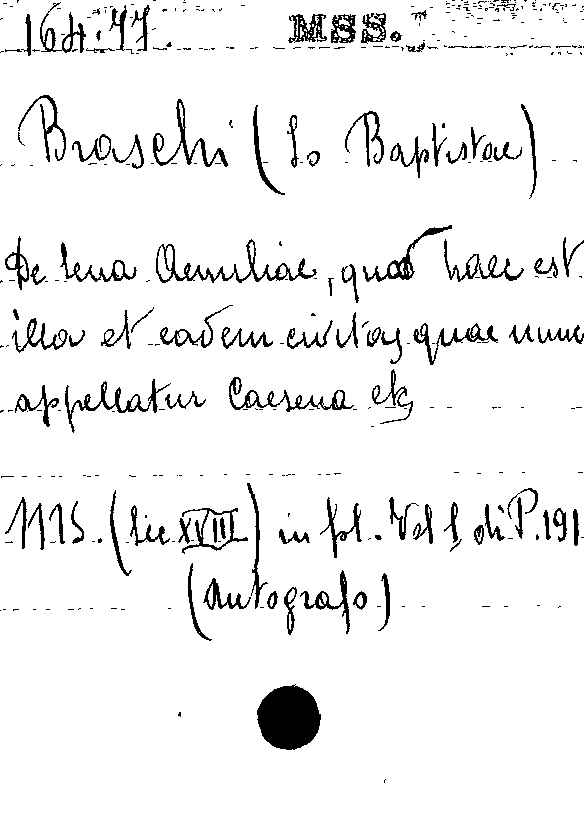 164.77. MSS.
Braschi (Io Baptistae)
De Sena Aemiliae, quod haec est
illa et eadem civitas quae nunc
appellatur Caesena etc
MS. (Sec XVIII) in fol. Vol 1, di P. 191
(autografo)